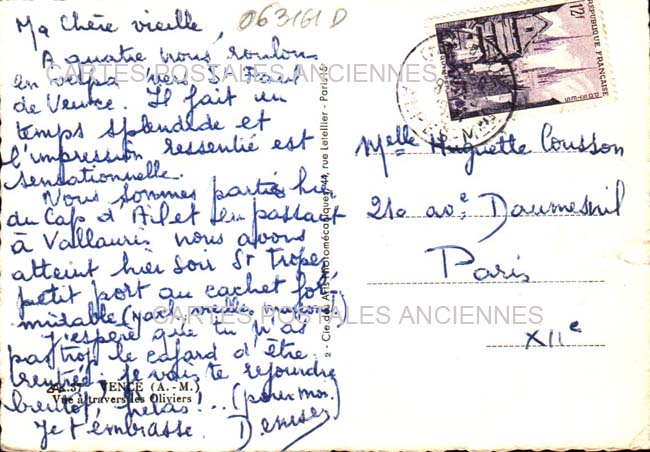 063161 D
Ma Chère vieille,
A quatre nous roulons
en vespa vers St Paul
de Vence. Il fait un
temps splendide et
l'impression ressentie est
sensationnelle.
Nous sommes partis hier
du Cap d'Ail et en passant
à Vallauris nous avons
atteint hier soir St Tropez
petit port au cachet for-
midable (yach, vieilles maisons)
J'espère que tu n'as
pas trop le cafard d'être
rentrée. Je vais te rejoindre
bientôt, hélas!.. (pour moi.
Je t'embrasse. Denise
37 VENCE (A.-M.)
Vue à travers les Oliviers
2 - Cie des Arts Photomécaniques, 44, rue Letellier - Paris
12F
REPUBLIQUE FRANÇAISE
POSTES
Melle Huguette Cousson
210 av.e Daumesnil
Paris
XIIe
CARTES POSTALES ANCIENNES
CARTES POSTALES ANCIENNES